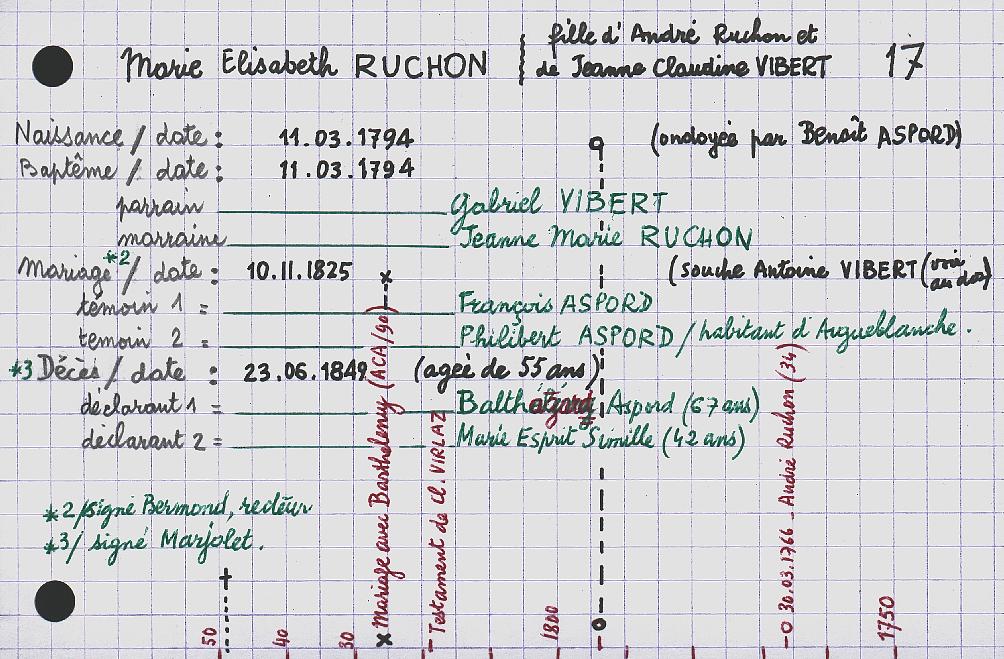 Marie Elisabeth RUCHON
fille d'André Ruchon et
de Jeanne Claudine VIBERT
17
Naissance / date : 11.03.1794 (ondoyée par Benoît ASPORD)
Baptême / date : 11.03.1794
parrain Gabriel VIBERT
marraine Jeanne Marie RUCHON
Mariage *2 / date : 10.11.1825 (souche Antoine VIBERT (voir
au dos)
témoin 1 = François ASPORD
temoin 2 = Philibert ASPORD / habitant d'Aigueblanche.
*3 Décès / date : 23.06.1849 (agée de 55 ans)
déclarant 1 = Aspord (67 ans)
déclarant 2 = Marie Esprit Simille (42 ans)
*2/ signé Bermond, recteur
*3/ signé Marjolet.
Mariage avec Barthelemy (ACA/90)
Testament de Cl. VIRLAZ
30.03.1766 _ André Ruchon (34)
50
40
30
1800
1750